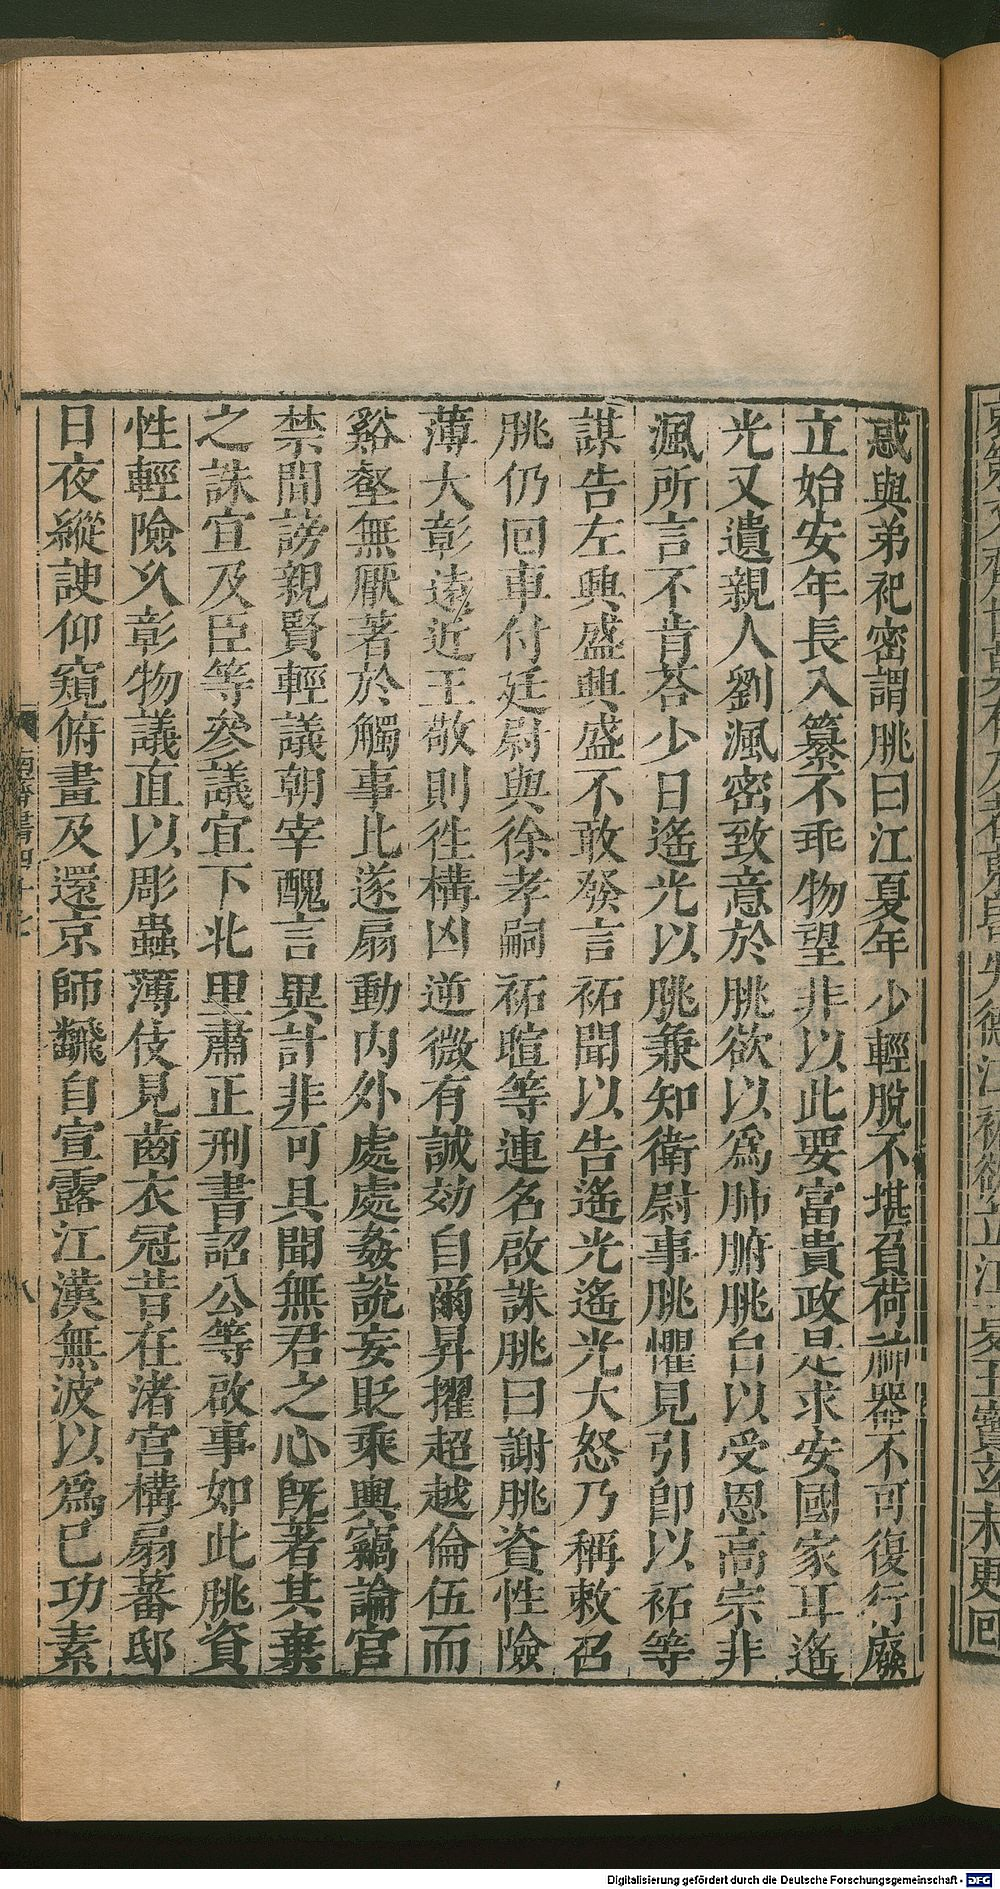 惑與弟祀密謂朓曰江夏年少輕脫不堪負荷神器不可復行廢
立始安年長入纂不乖物望非以此要富貴政是求安國家耳遙
光又遺親人劉渢密致意於朓欲以爲肺腑朓自以受恩高宗非
渢所言不肯荅少日遙光以朓兼知衛尉事朓懼見引即以祏等
謀告左興盛興盛不敢發言祏聞以告遙光遙光大怒乃稱敕召
朓仍回車付廷尉與徐孝嗣祏暄等連名啟誅朓曰謝朓資性險
薄大彰遠近王敬則徃構凶逆微有誠効自爾昇擢超越倫伍而
谿壑無厭著於觸事比遂扇動內外處處姦說妄貶乘輿竊論宮
禁間謗親賢輕議朝宰醜言異計非可具聞無君之心既著其棄
之誅宜及臣等參議宜下北里肅正刑書詔公等啟事如此朓資
性輕險乆彰物議直以彫蟲薄伎見齒衣冠昔在渚宮構扇蕃邸
日夜縱諛仰窺俯畫及還京師飜自宣露江漢無波以爲已功素
南齊書四十七
八
Digitalisierung gefördert durch die Deutsche Forschungsgemeinschaft - DFG